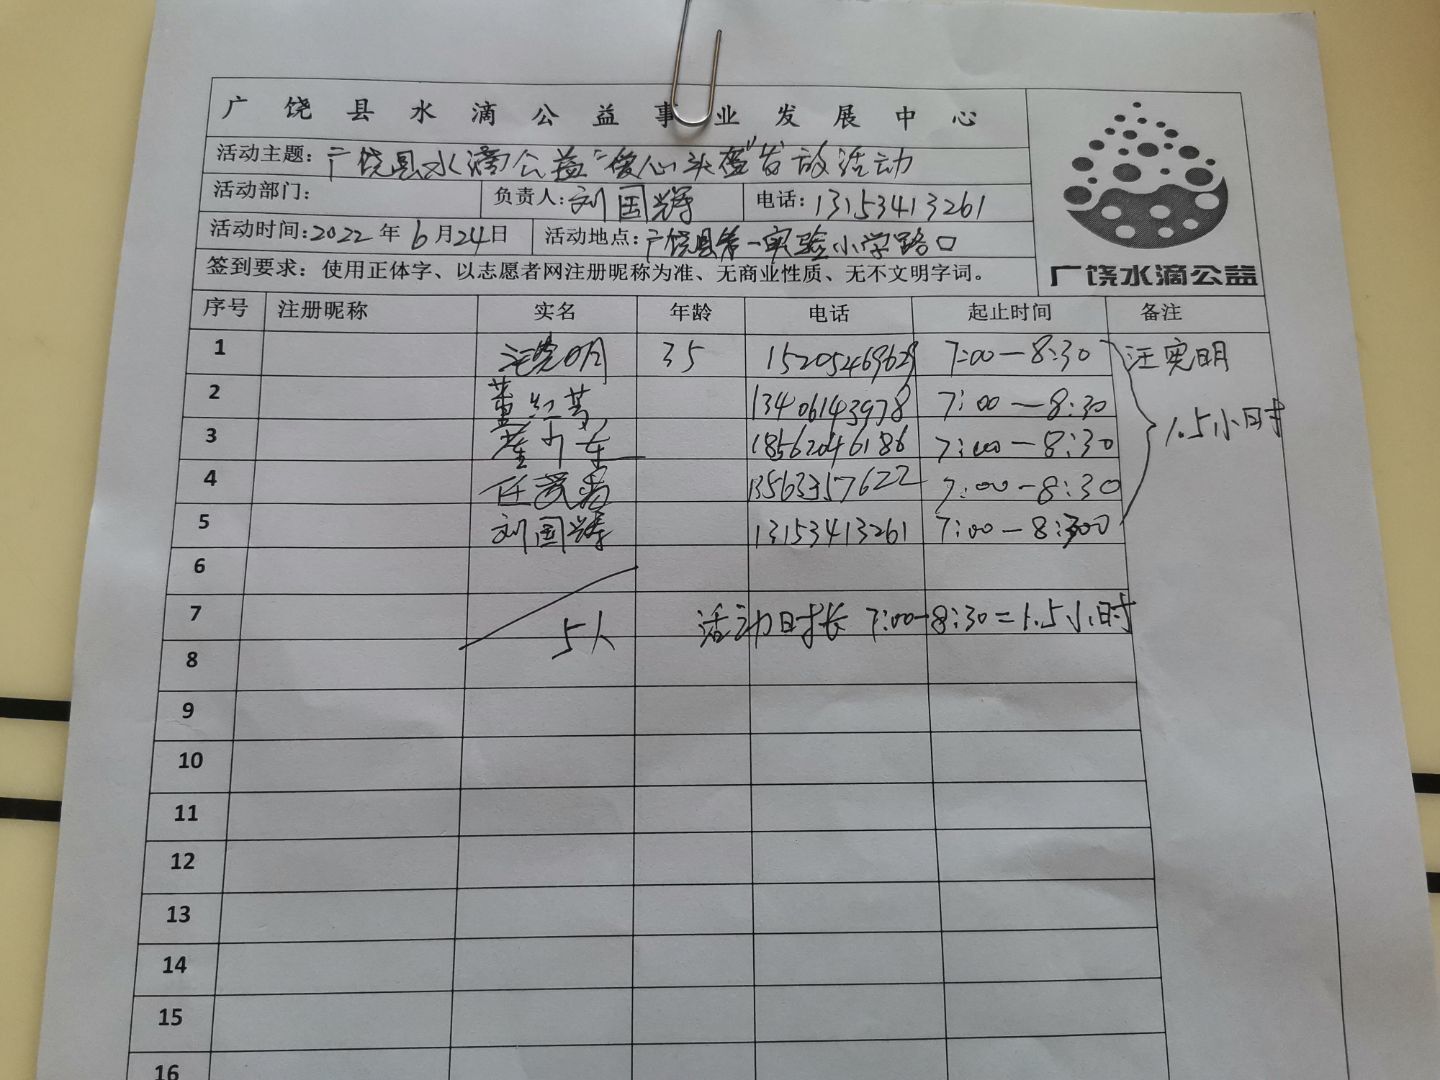 广饶县水滴公益事业发展中心
活动主题：广饶县水滴公益"爱心头盔"发放活动
活动部门： 负责人：刘国辉 电话：13153413261
活动时间：2022年6月24日 活动地点：广饶县第一实验小学路口
签到要求：使用正体字、以志愿者网注册昵称为准、无商业性质、无不文明字词。
广饶水滴公益
序号 注册昵称 实名 年龄 电话 起止时间 备注
1 汪宪明 35 15205469629 7:00—8:30 汪宪明
2 13406143978 7:00—8:30
1.5小时
3 18562046186 7:00—8:30
4 7:00—8:30
5 刘国辉 13153413261 7:00—8:30
6
7 5人 活动时长 7:00—8:30=1.5小时
8
9
10
11
12
13
14
15
16